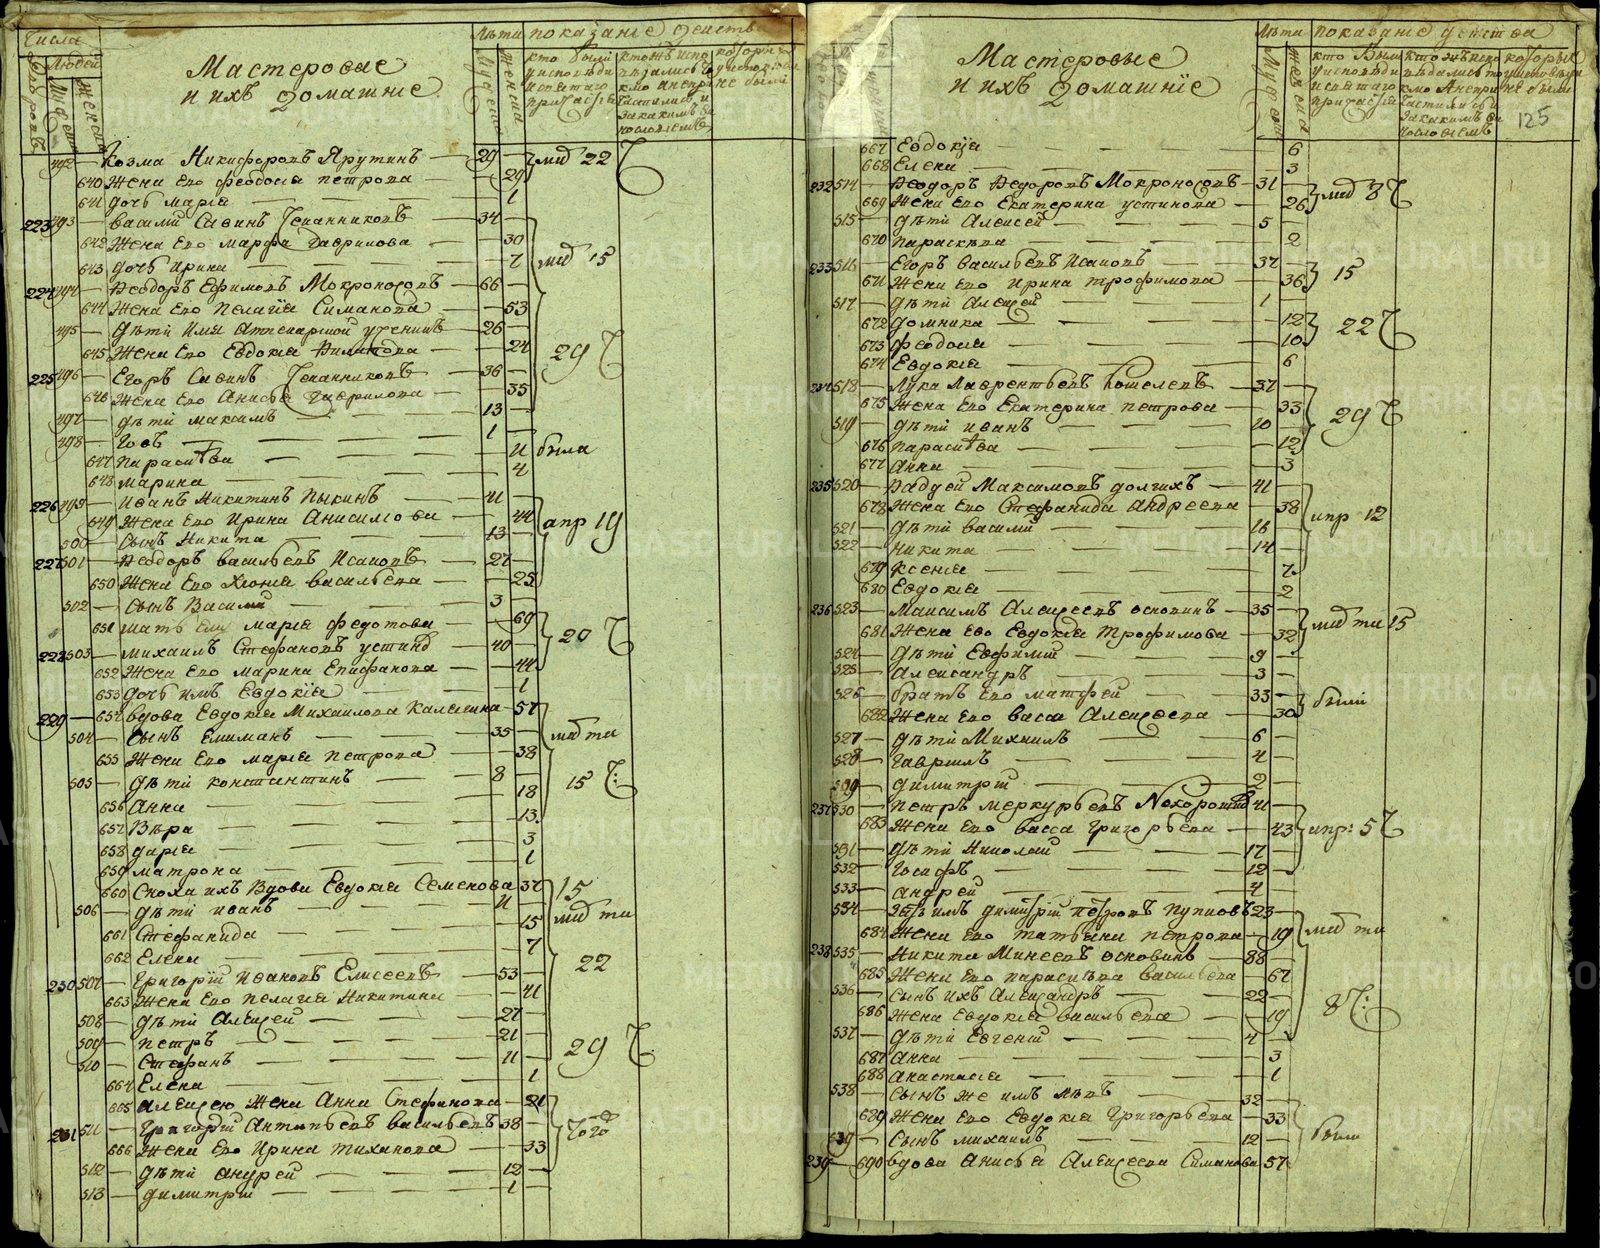 Числа
Людей
Мастеровые
и ихъ домашніе
Лѣта
показаніе действа
492 Козма Никифоровъ Ярутинъ 29
640 Жена Его Феодосія петрова 29
641 дочь марія 1
мая 22
223 493 василій Савинъ 34
642 Жена Его марфа Гаврилова 30
643 дочь Ирина 7
мая 15
224 494 Ѳеодоръ Ефимовъ Мокроносовъ 66
644 Жена Его Пелагія Симанова 53
495 дѣти 26
645 Жена Его Евдокія Филипова 24
29 Ч
225 496 Егоръ Савинъ 36
646 Жена Его Анисья Гаврилова 35
497 дѣти максимъ 13
498 Іовъ 1
647 Парасковва 11
была
648 марина 4
226 499 Иванъ Никитинъ Пыкинъ 41
649 Жена Его Ирина Анисимова 44
апр 19
500 Сынъ Никита 13
227 501 Ѳеодоръ васильевъ Исаковъ 27
650 Жена Его Хіонія васильева 25
502 Сынъ Василій 3
651 мать Ему марія федотова 69
20 Ч
228 503 михаилъ Стефановъ 40
652 Жена Его марина Епифанова 44
653 дочь имъ Евдокія 1
229 654 вдова Евдокія Михаилова Калинина 57
504 Сынъ 35
мая ти
655 Жена Его марія петрова 38
505 дѣти константинъ 8
15 Ч:
656 Анна 18
657 Вѣра 13
658 дарія 3
659 матрона 1
660 Сноха ихъ Вдова Евдокія Семенова 37
15
506 дѣти иванъ 11
мая ти
661 Стефанида 15
662 Елена 7
22
230 507 Григорій Ивановъ Елисеевъ 53
663 Жена Его Пелагія Никитина 41
508 дѣти Алексей 27
509 петръ 21
29 Ч
510 Стефанъ 11
664 Елена 1
665 Алексею Жена Анна Стефанова 21
231 511 Григорій Антипьевъ васильевъ 38
того
666 Жена Его Ирина Тиханова 33
512 дѣти андрей 12
513 димитрій 1
Мастеровые
и ихъ домашніе
Лѣта
показаніе действа
125
667 Евдокія 6
668 Елена 3
232 514 Ѳеодоръ Ѳедоровъ Мокроносовъ 31
мая 8 Ч
669 Жена Его Екатерина устинова 26
515 дѣти Алексей 5
670 параскева 2
233 516 Егоръ васильевъ Исаковъ 37
15
671 Жена Его Ирина трофимова 36
517 дѣти Алексей 1
672 домника 12
22 Ч
673 феодосія 10
674 Евдокія 6
234 518 Лука Лаврентьевъ Кошелевъ 37
675 Жена Его Екатерина петрова 33
29 Ч
519 дѣти иванъ 10
676 парасковва 12
677 анна 3
235 520 Фаддей Максимовъ долгихъ 41
678 Жена Его Стефанида Андреева 38
апр 12
521 дѣти василій 16
522 никита 14
679 Ксенія 7
680 Евдокія 2
236 523 Максимъ Алексеевъ основинъ 35
мая ти 15
681 Жена Его Евдокія трофимова 32
524 дѣти Евфимій 9
525 Александръ 3
526 братъ Его матфей 33
были
682 Жена Его васса Алексеева 30
527 дѣти Михаилъ 6
528 Гавриилъ 4
529 димитрій 2
237 530 Петръ меркурьевъ Нехорошій 41
683 Жена Его васса Григорьева 43
апр: 5 Ч
531 дѣти Николай 17
532 Іосифъ 12
533 андрей 4
534 Зять имъ димитрій петровъ Пупковъ 23
мая ти
684 Жена Его татьяна петрова 19
238 535 Никита Минеевъ основинъ 88
685 Жена Его парасковва васильева 67
536 Сынъ ихъ Александръ 22
8 Ч:
686 Жена Евдокія васильева 19
537 дѣти Евгений 4
687 анна 3
688 анастасія 1
538 Сынъ же имъ 32
689 Жена Его Евдокія Григорьева 33
были
539 Сынъ михаилъ 12
239 690 вдова Анисья Алексеева Симанова 57